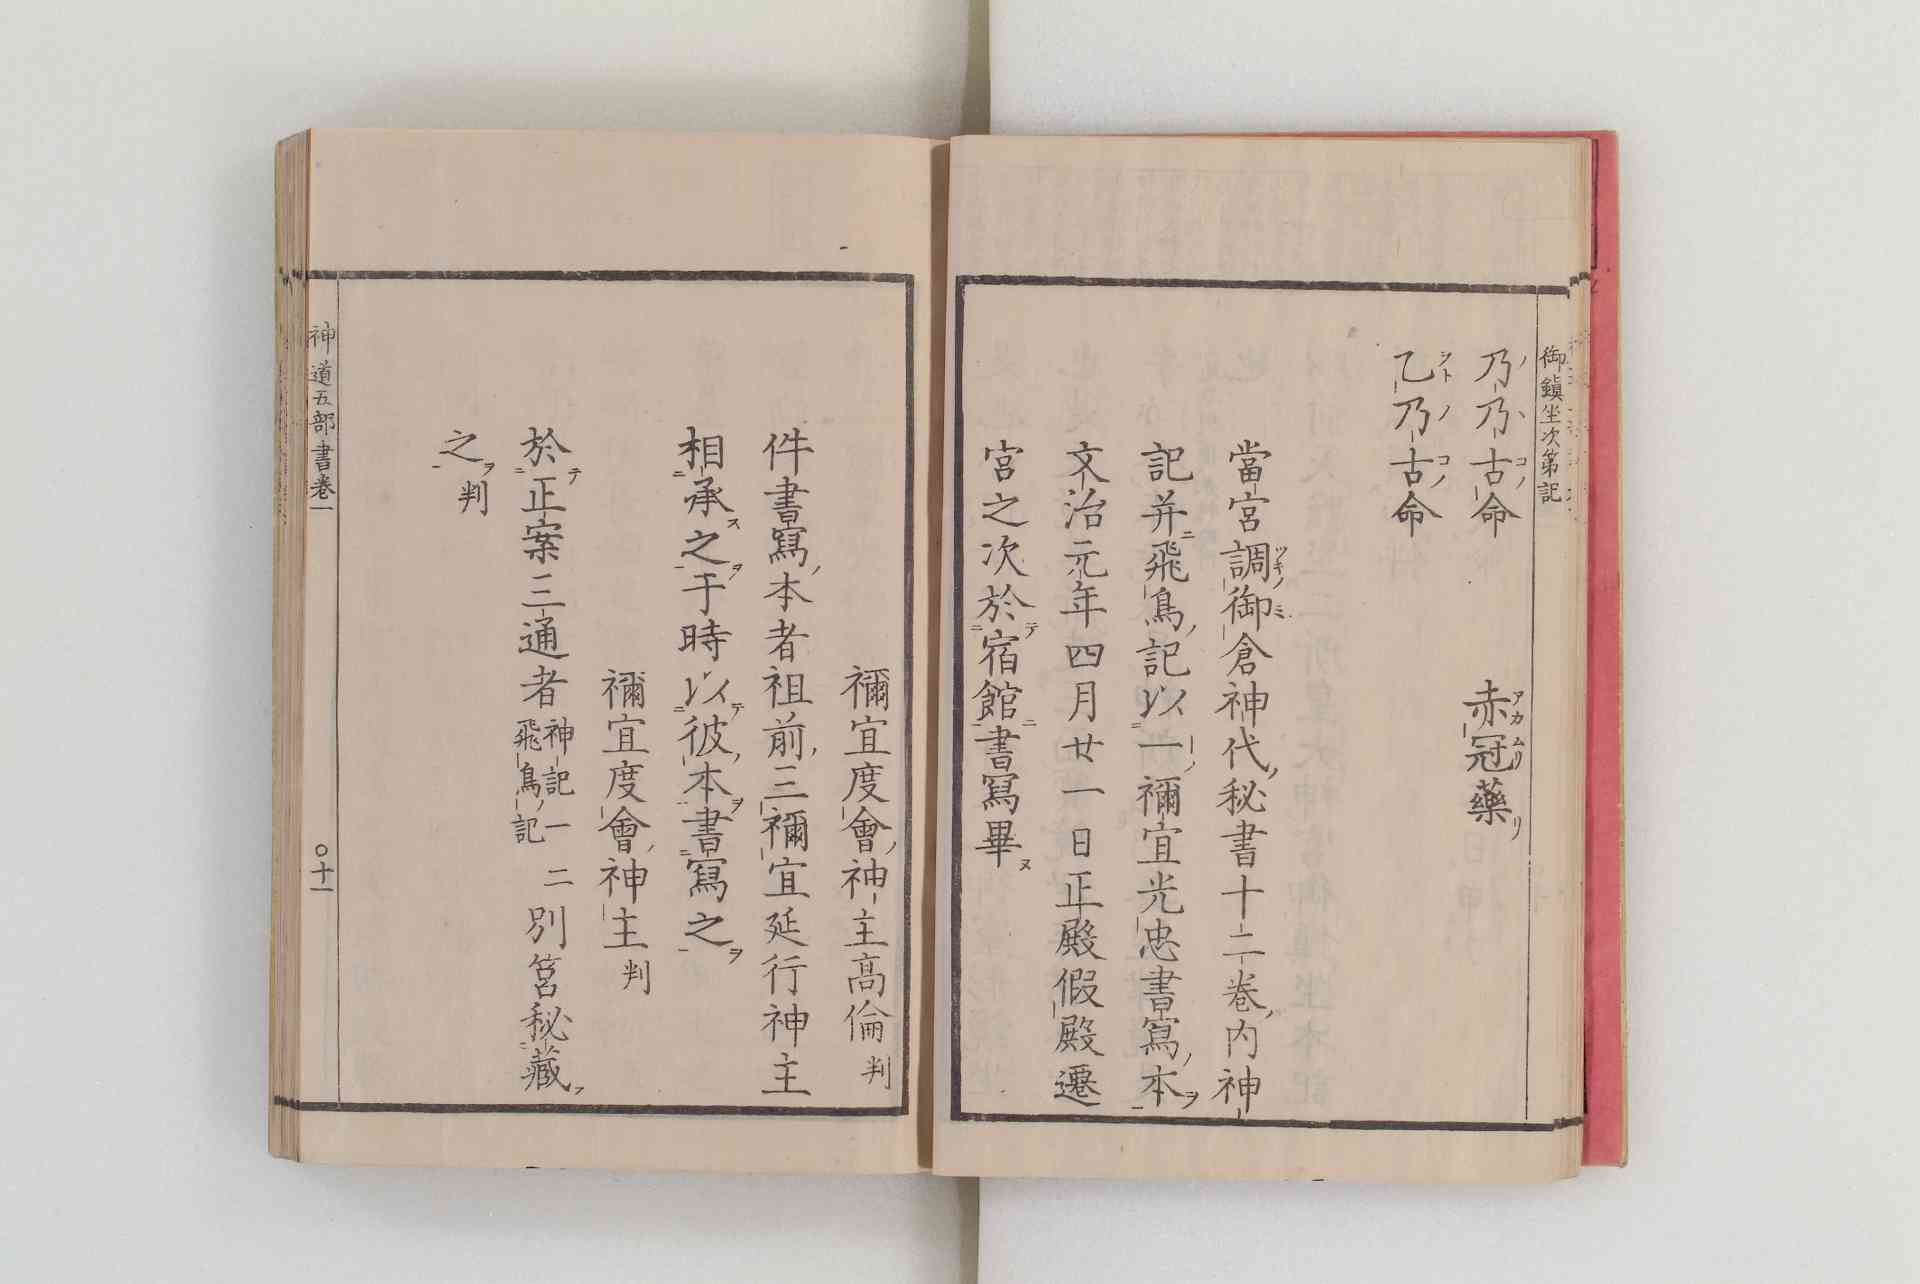 御鎮坐次第記
乃乃古命　赤冠藥
乙乃古命
當宮調御倉神代秘書十二卷内神
記并飛鳥記以一禰宜光忠書寫本
文治元年四月廿一日正殿假殿遷
宮之次於宿館書寫畢
禰宜度會神主高倫判
件書寫本者祖前三禰宜延行神主
相承之于時以彼本書寫之
禰宜度會神主判
於正案三通者神記一飛鳥記二別筥秘藏
之判
神道五部書卷一　〇十一